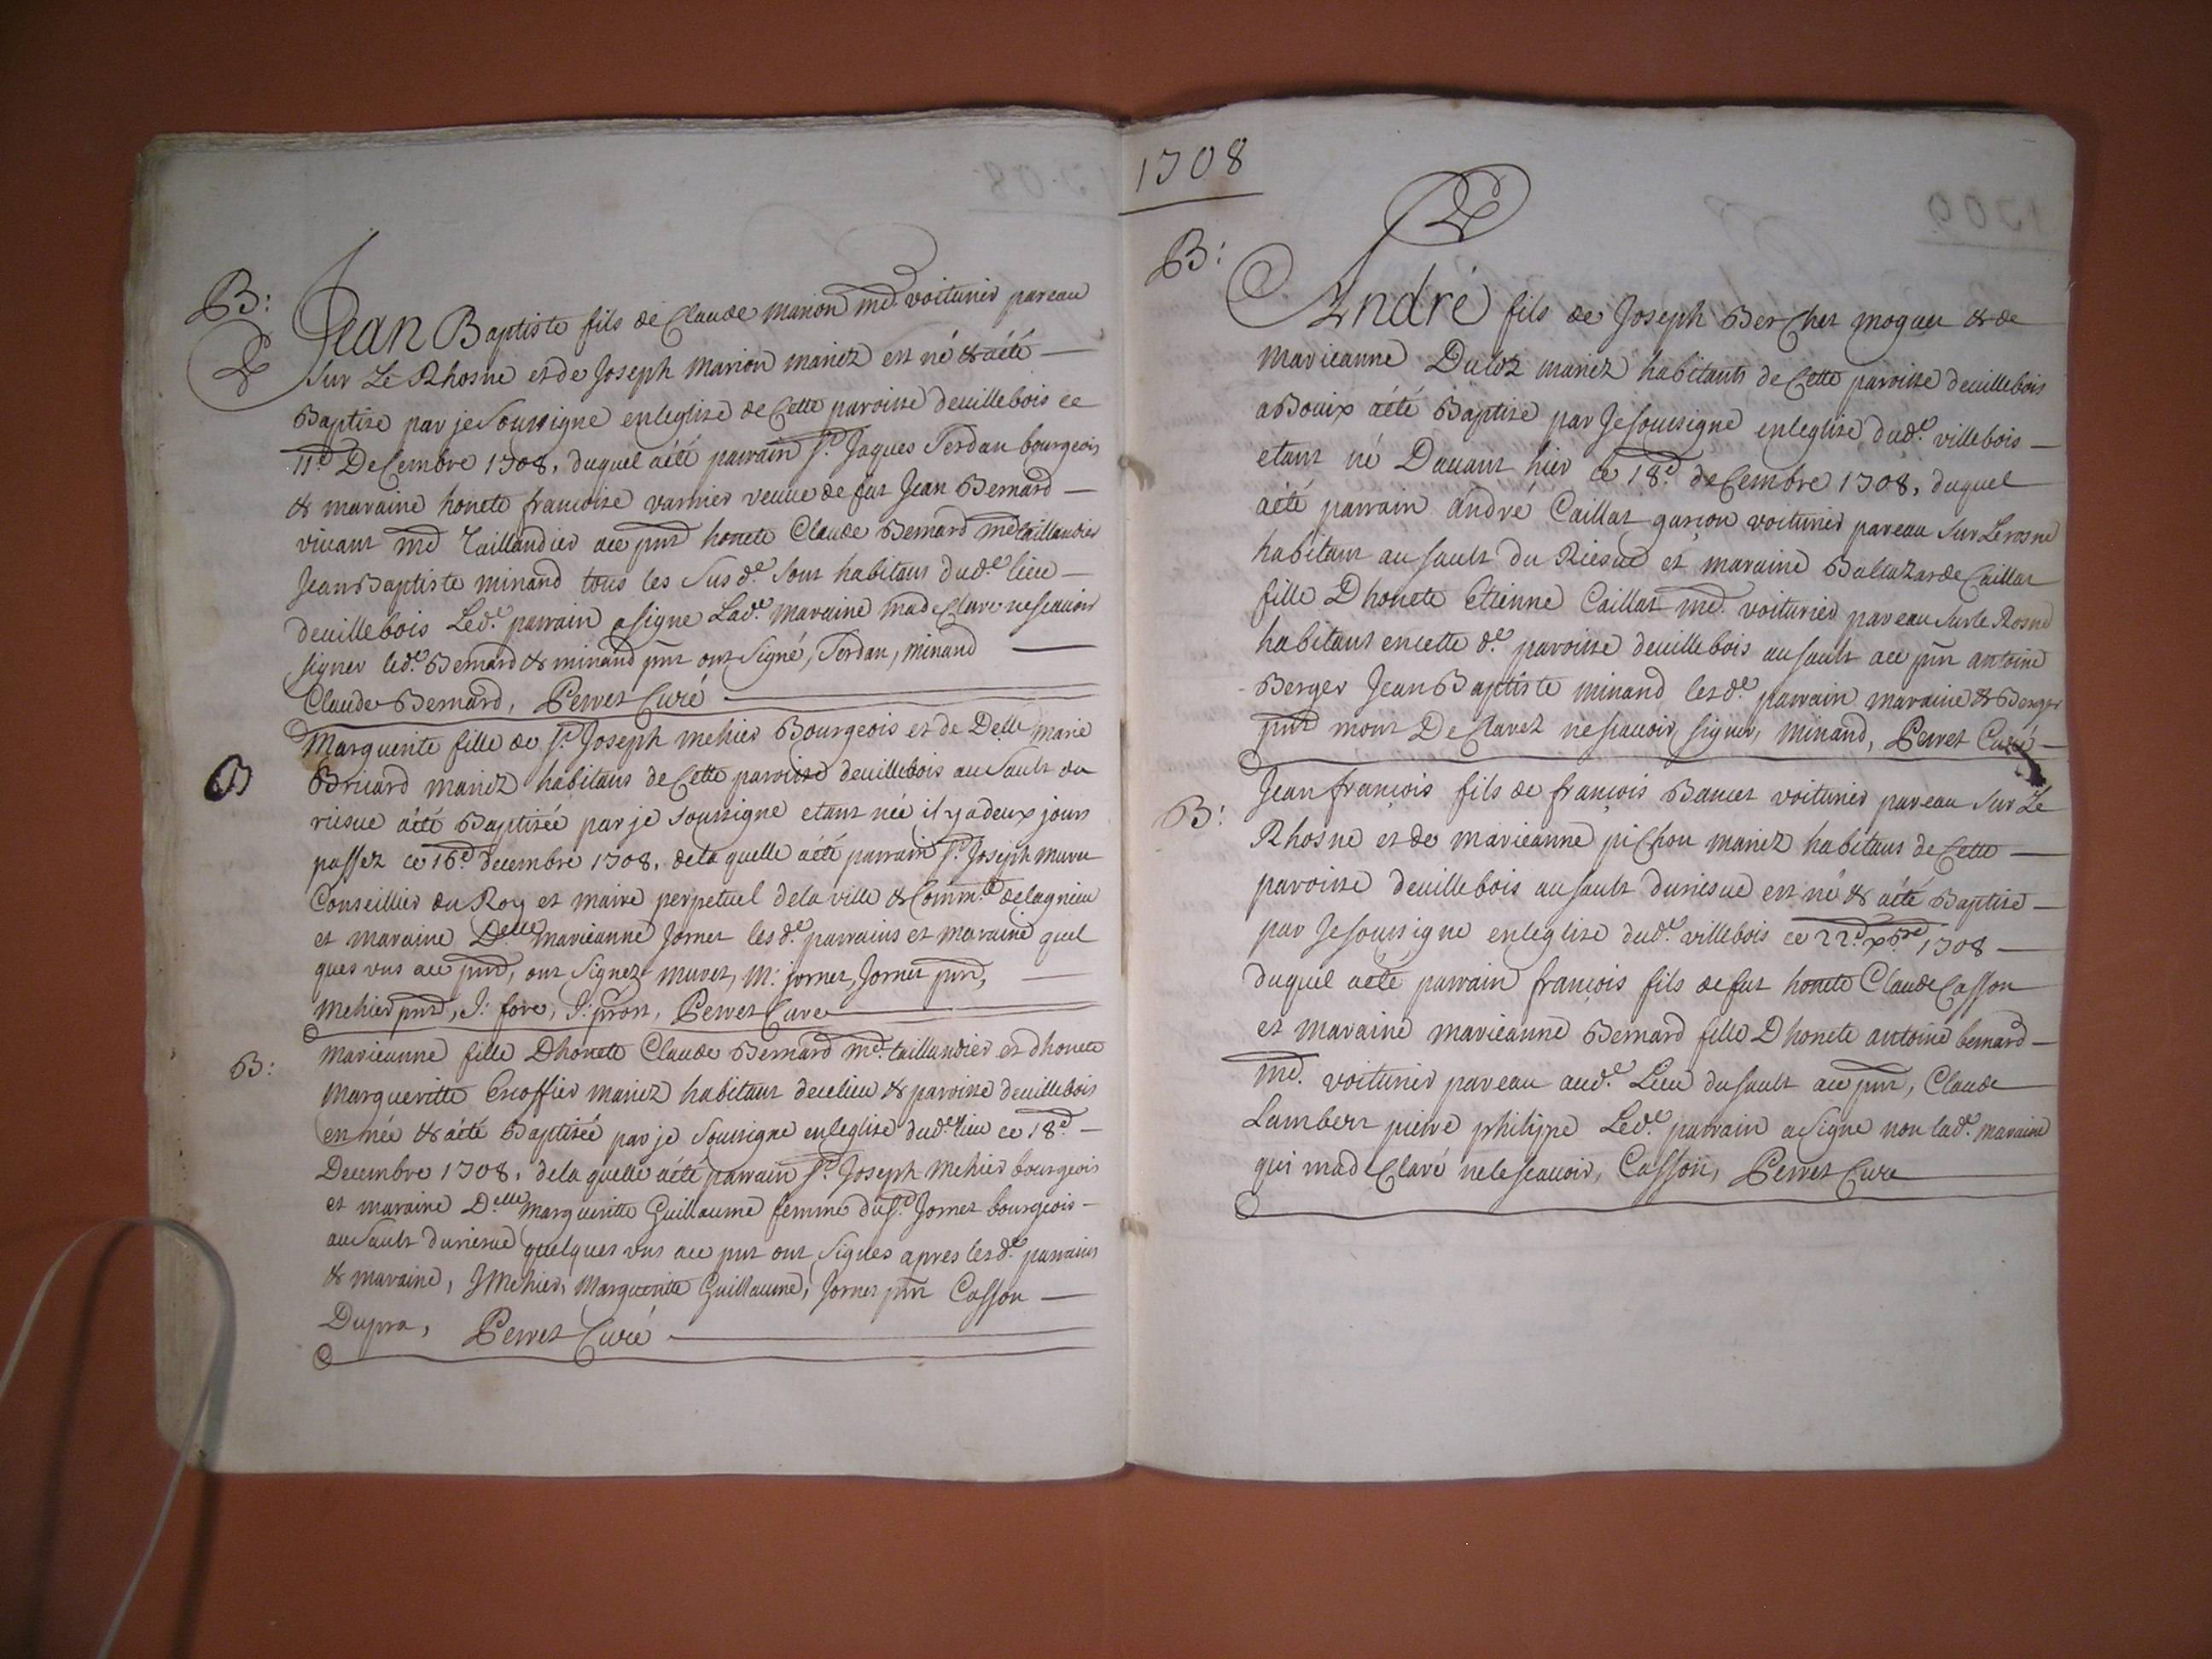 1708
B:
Jean Baptiste fils de Claude Marion md. voiturier pareau
sur Le Rhosne et de Joseph Marion mariez est né & aété
Baptize par je soussigne enleglize de Cette paroisse devillebois ce
11e. Decembre 1708, duquel aété parrain sr. Jaques Terdan bourgeois
& maraine honete francoise varnier veuve de fut Jean Bernard
vivant md Taillandier ace pnt honete Claude Bernard md taillandier
Jean Baptiste minand tous les susde. sont habitans dude. lieu
devillebois Lede. parrain asigne Lade. maraine madeclare nescavoir
signer lede. Bernard & minand pnt ont signé, Terdan, minand
Claude Bernard, Perret Curé
B
Marguerite fille de sr. Joseph mehier Bourgeois et de Delle marie
Bricard mariez habitans de Cette paroisse devillebois au sault du
riesue aété Baptisée par je soussigne etant née il yadeux jours
passez ce 16e. decembre 1708, dela quelle aété parrain sr. Joseph
Conseillier du Roy et maire perpetuel dela ville & Commté delagnieu
et maraine Delle marieanne Jornet lesde. parrains et maraine quel
ques vns ace pnt, ont signez muret, M: jornet, Jornet pnt,
mehier pnt, J: fore, J: pront, Perret Cure
B:
marieanne fille Dhonete Claude Bernard md. taillandier et dhonete
margueritte Enoffier mariez habitant decelieu & paroisse devillebois
est née & aété Baptisée par je soussigne enleglize dude. lieu ce 18e.
Decembre 1708, dela quelle aété parrain sr. Joseph Mehier bourgeois
et maraine Delle. margueritte Guillaume femme du sr. Jornet bourgeois
au sault duriesue quelques vns ace pnt ont signes apres lesde. parrains
& maraine, JMehier, Margueritte Guillaume, Jornet pnt Casson
Dupra, Perret Curé
B:
André fils de Joseph Berchet & de
marieanne mariez habitants de Cette paroisse devillebois
aBouix aété Baptize par Je soussigne enleglize dude. villebois
etant né Davant hier ce 18e. decembre 1708, duquel
aété parrain andré Caillat garçon voiturier pareau sur Lerosne
habitant au sault du Riesue et maraine Baltazarde Caillat
fille Dhonete Etienne Caillat md. voiturier pareau surle Rosne
habitant encette de. paroisse devillebois au sault ace pnt antoine
Berger Jean Baptiste minand lesde. parrain maraine & Berger
pnt mont Declarez nescavoir signer, minand, Perret Curé
B:
Jean françois fils de françois Bancet voiturier pareau sur Le
Rhosne et de marieanne pichon mariez habitans de Cette
paroisse devillebois au sault duriesue est né & aété Baptize
par Je soussigne enleglize dude. villebois ce 22e. xbre 1708
duquel aété parrain françois fils de fut honete Claude Casson
et maraine marieanne Bernard fille Dhonete antoine bernard
md. voiturier pareau aude. Lieu du sault ace pnt, Claude
Lambert pierre philippe Lede. parrain asigne non lade. maraine
qui madeclaré nele scavoir, Casson, Perret Cure